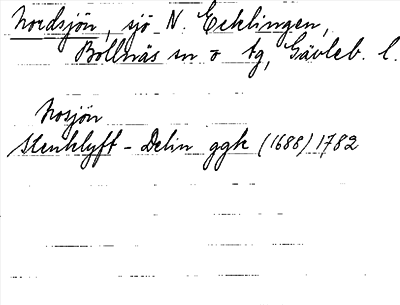 Nordsjön, sjö N. Ecklingen,
Bollnäs sn o tg, Gävleb. l.
Nosjön
Stenklyft - Delin ggk (1688) 1782